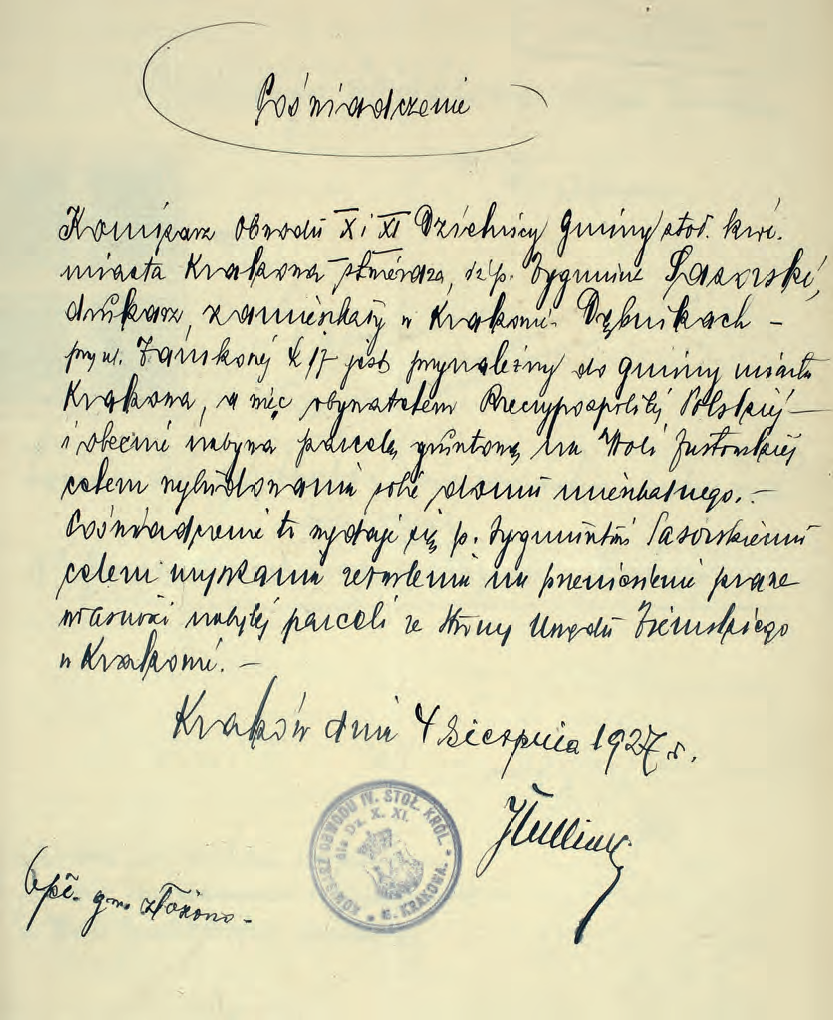 Poświadczenie
Komisarz Obwodu X i XI Dzielnicy Gminy stoł. król.
miasta Krakowa stwierdza, że p. Zygmunt Sasorski,
drukarz, zamieszkały w Krakowie Dębnikach –
przy ul. Zamkowej L 17 jest przynależny do Gminy miasta
Krakowa, a więc obywatelem Rzeczypospolitej Polskiej –
i obecnie nabywa parcelę gruntową na Woli Justowskiej
celem wybudowania sobie domu mieszkalnego. –
Poświadczenie to wydaje się p. Zygmuntowi Sasorskiemu
celem uzyskania zezwolenia na przeniesienie prawa
własności nabytej parceli ze strony Urzędu Ziemskiego
w Krakowie. –
Kraków dnia 4 Sierpnia 1927 r.
KOMISARZ OBWODU IV. STOŁ. KRÓL.
M. KRAKOWA.
dla Dz. X. XI.
gm. złożono –